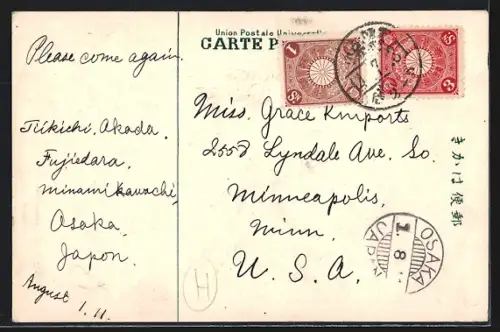 Union Postale Universelle
CARTE P
Please come again.
Tikichi. Akada.
Fujiedara.
minamikawachi,
Osaka,
Japon.
August 1. 11.
Miss. Grace Kimports
2558 Lyndale Ave. So.
Minneapolis,
Minn.
U. S. A.
きかは便郵
OSAKA
1. 8
JAPAN
H
1
3